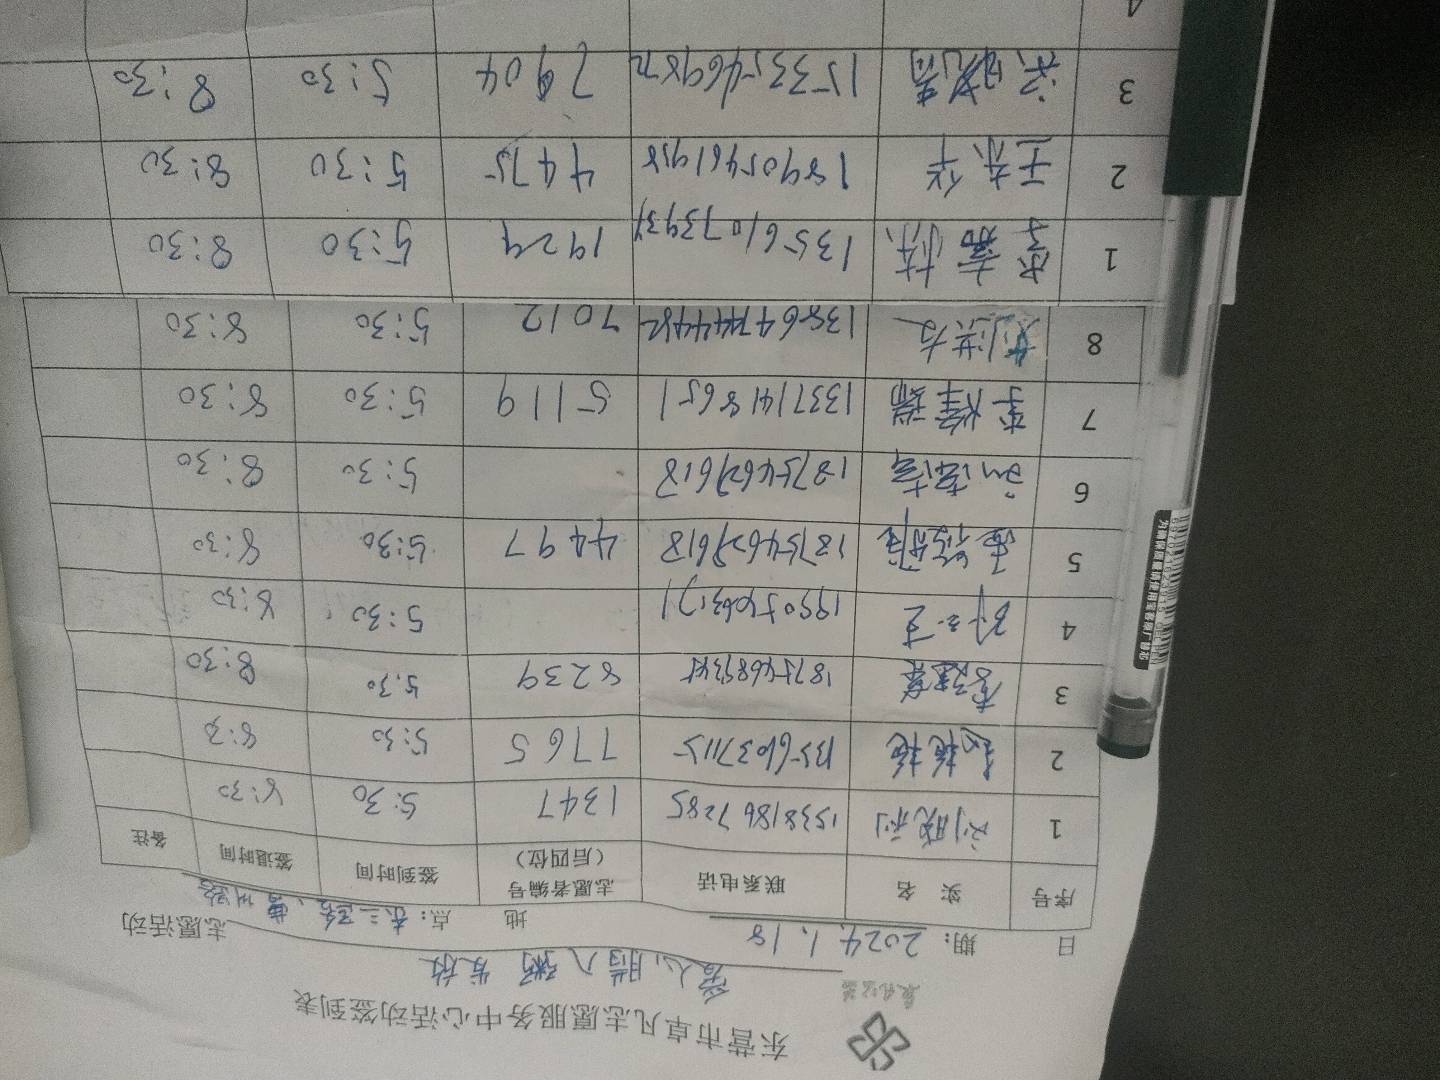 东营市卓凡志愿服务中心活动签到表
爱心腊八粥发放 志愿活动
日 期：2024.1.18 地 点：东三路、曹州路
序号 实 名 联系电话 志愿者编号（后四位） 签到时间 签退时间 备注
1 刘胜利 15381867285 1347 5:30 8:30
2 13561037115 7765 5:30 8:30
3 18754689345 8239 5:30 8:30
4 5:30 8:30
5 18754627618 4497 5:30 8:30
6 18754627618 5:30 8:30
7 李烽瑞 13371418651 5119 5:30 8:30
8 刘洪友 7012 5:30 8:30
1 李嘉怀 13561073937 1929 5:30 8:30
2 王东华 18905461958 4475 5:30 8:30
3 宋晓青 7904 5:30 8:30
4